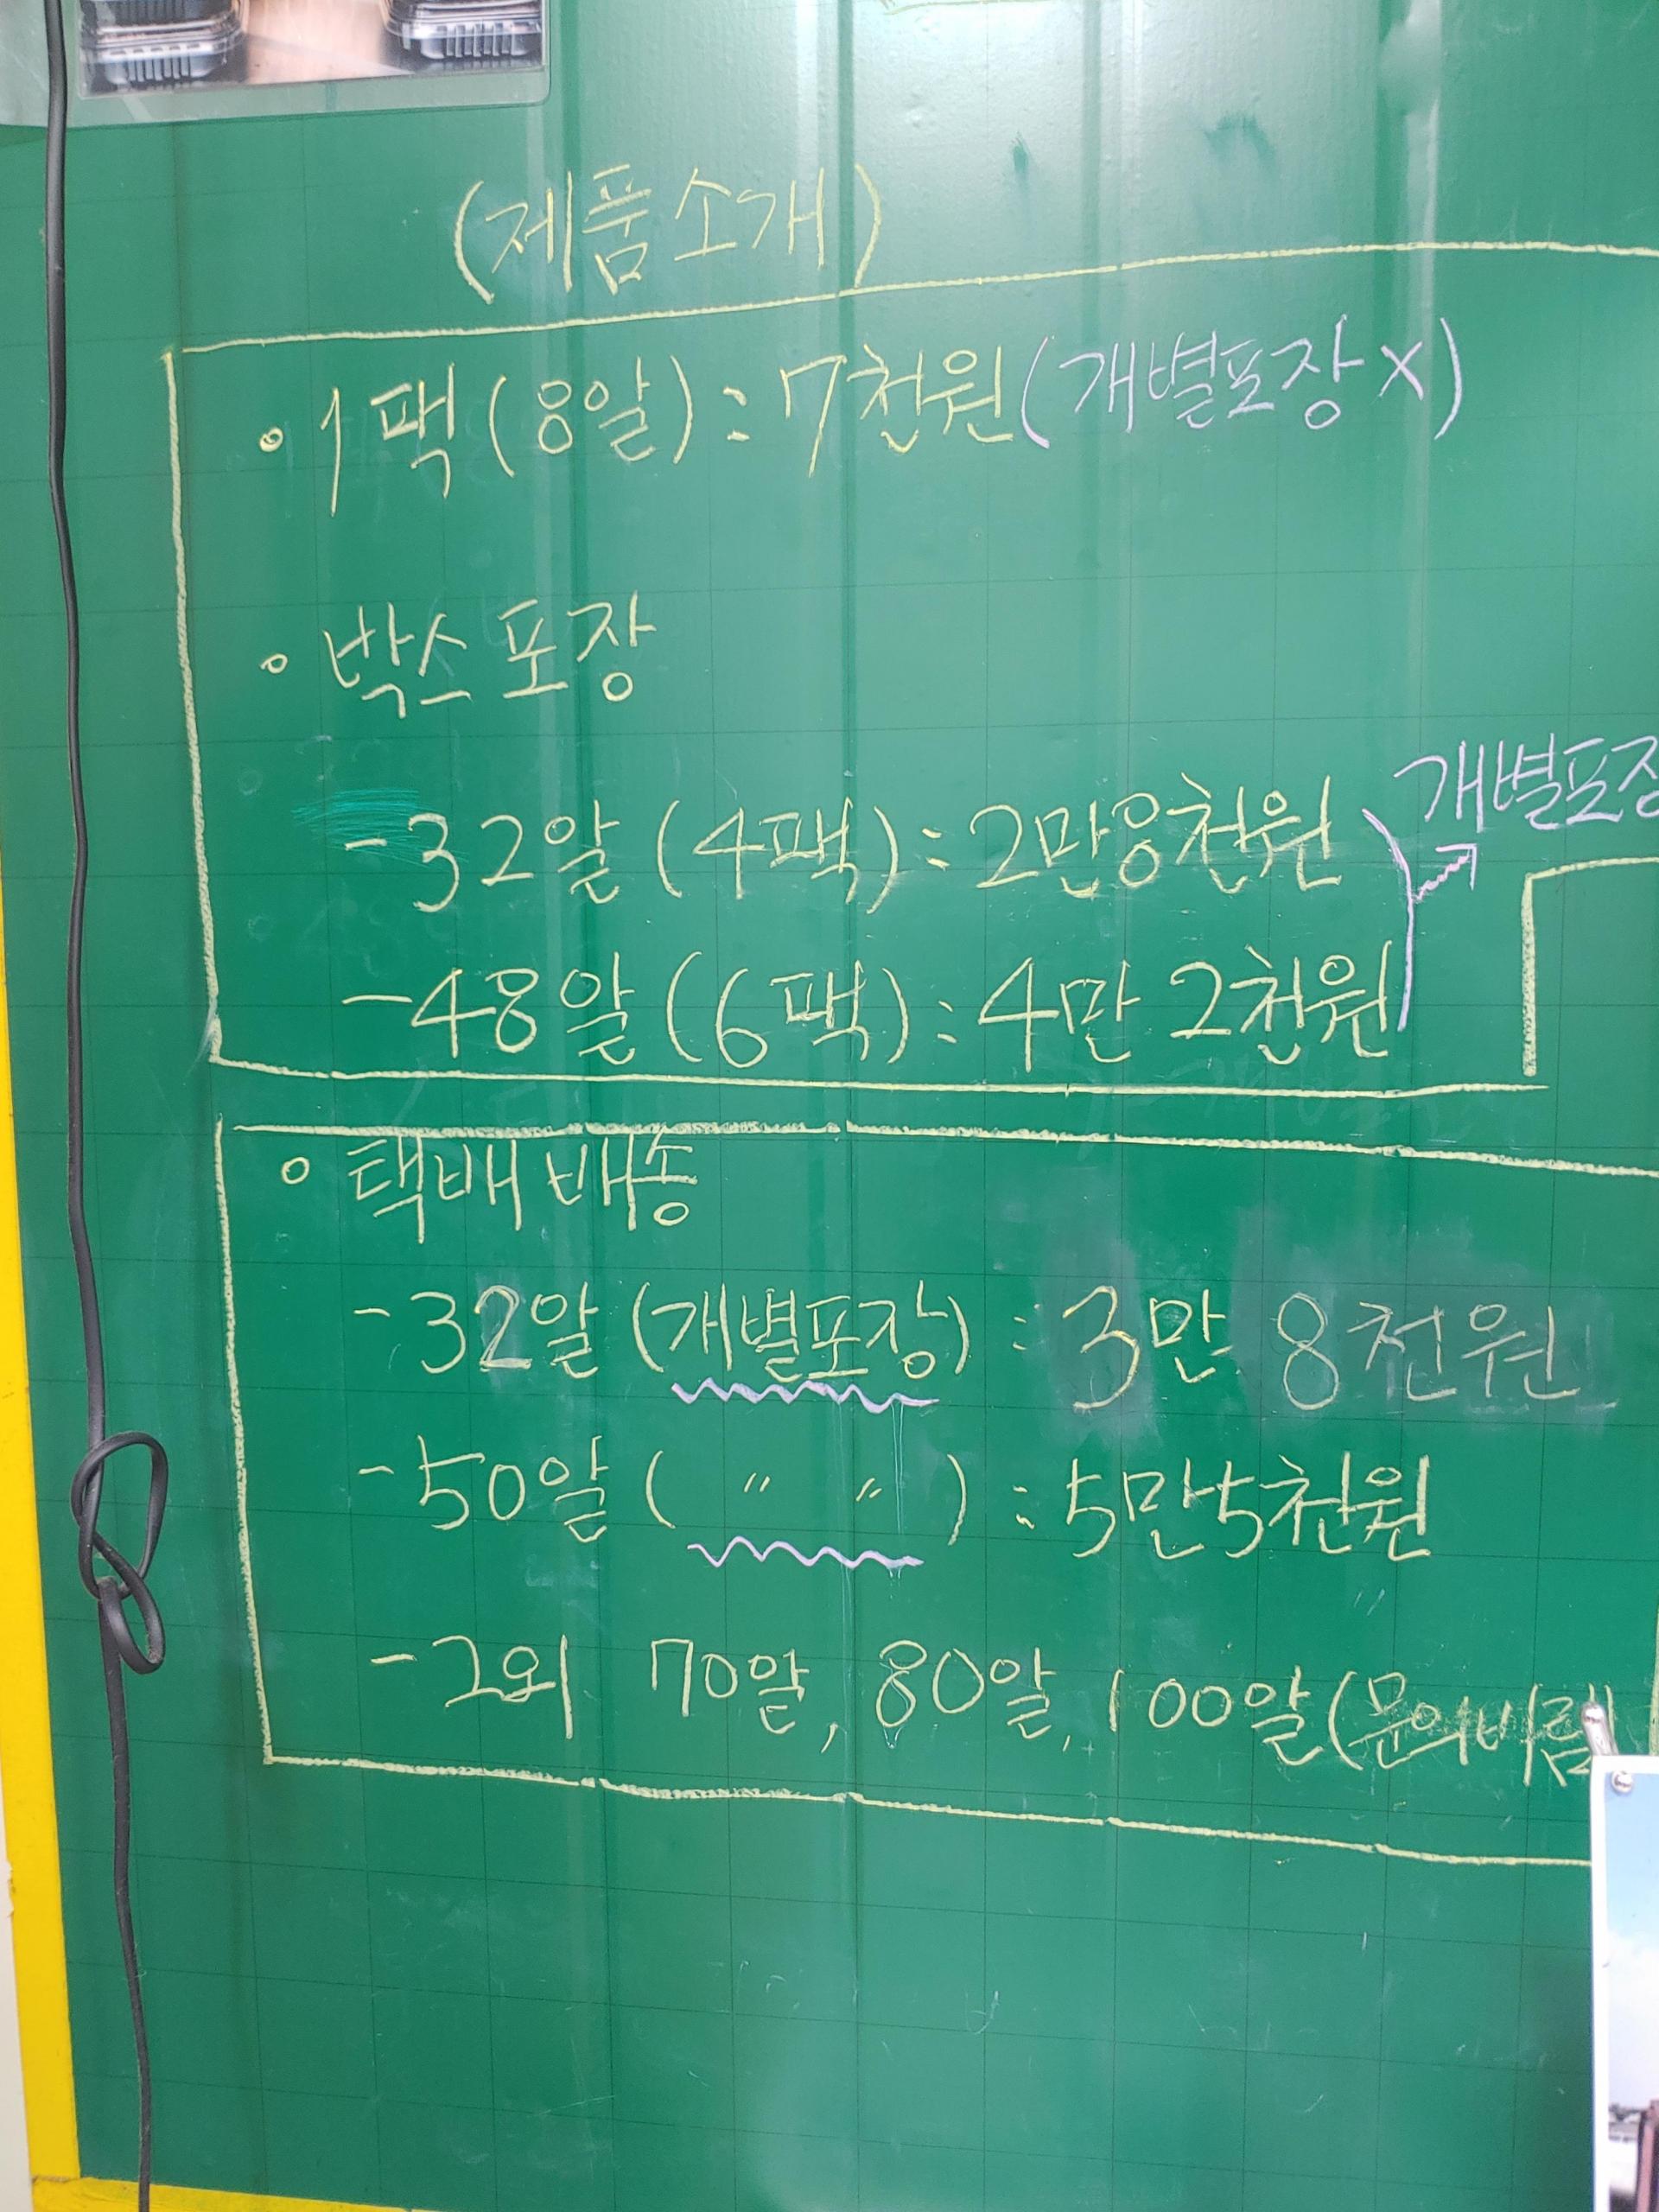 (제품소개)
• 1팩(8알) : 7천원(개별포장 X)
• 박스포장
개별포장
- 32알 (4팩) : 2만8천원
- 48알 (6팩) : 4만 2천원
• 택배배송
- 32알 (개별포장) : 3만 8천원
- 50알 ( 〃 〃 ) : 5만5천원
- 그외 70알, 80알, 100알(문의바람)